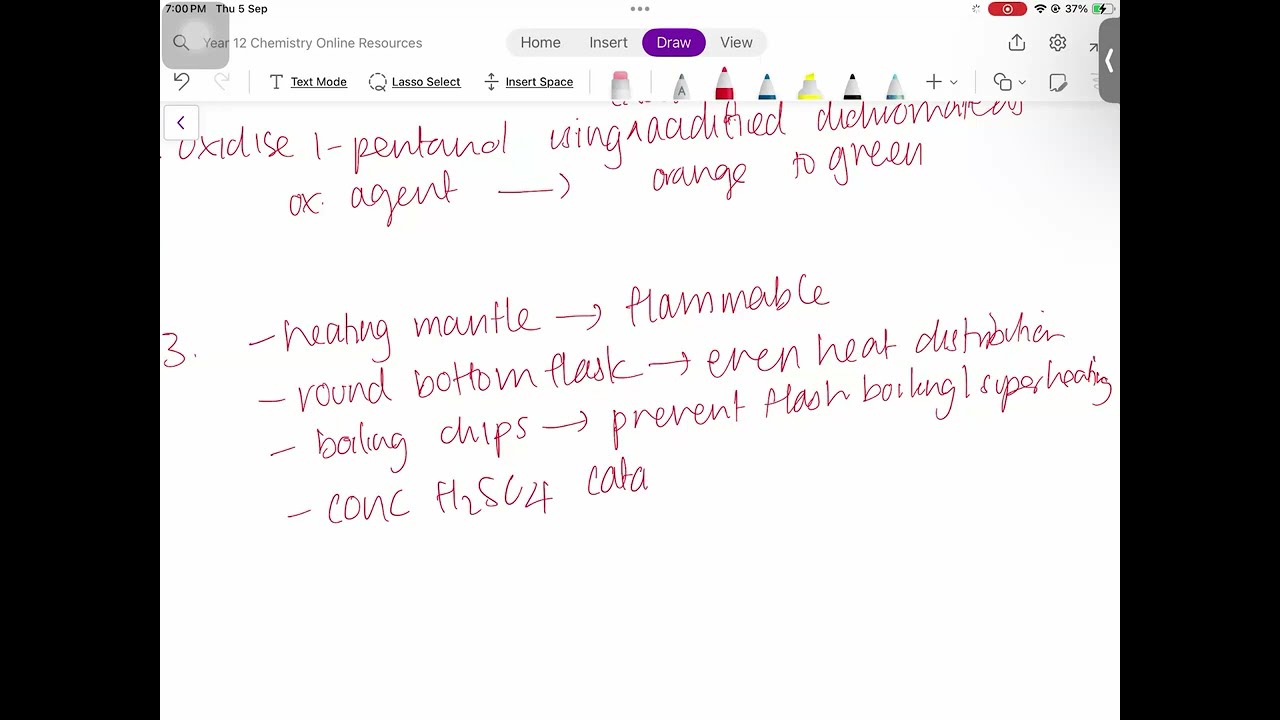 7:00 PM Thu 5 Sep
37%
Year 12 Chemistry Online Resources
Home Insert Draw View
Text Mode Lasso Select Insert Space
oxidise 1-pentanol using acidified
ox. agent → orange to green
3. - heating mantle → flammable
- round bottom flask → even heat distribution
- boiling chips → prevent flash boiling / superheating
- conc H2SO4 cata